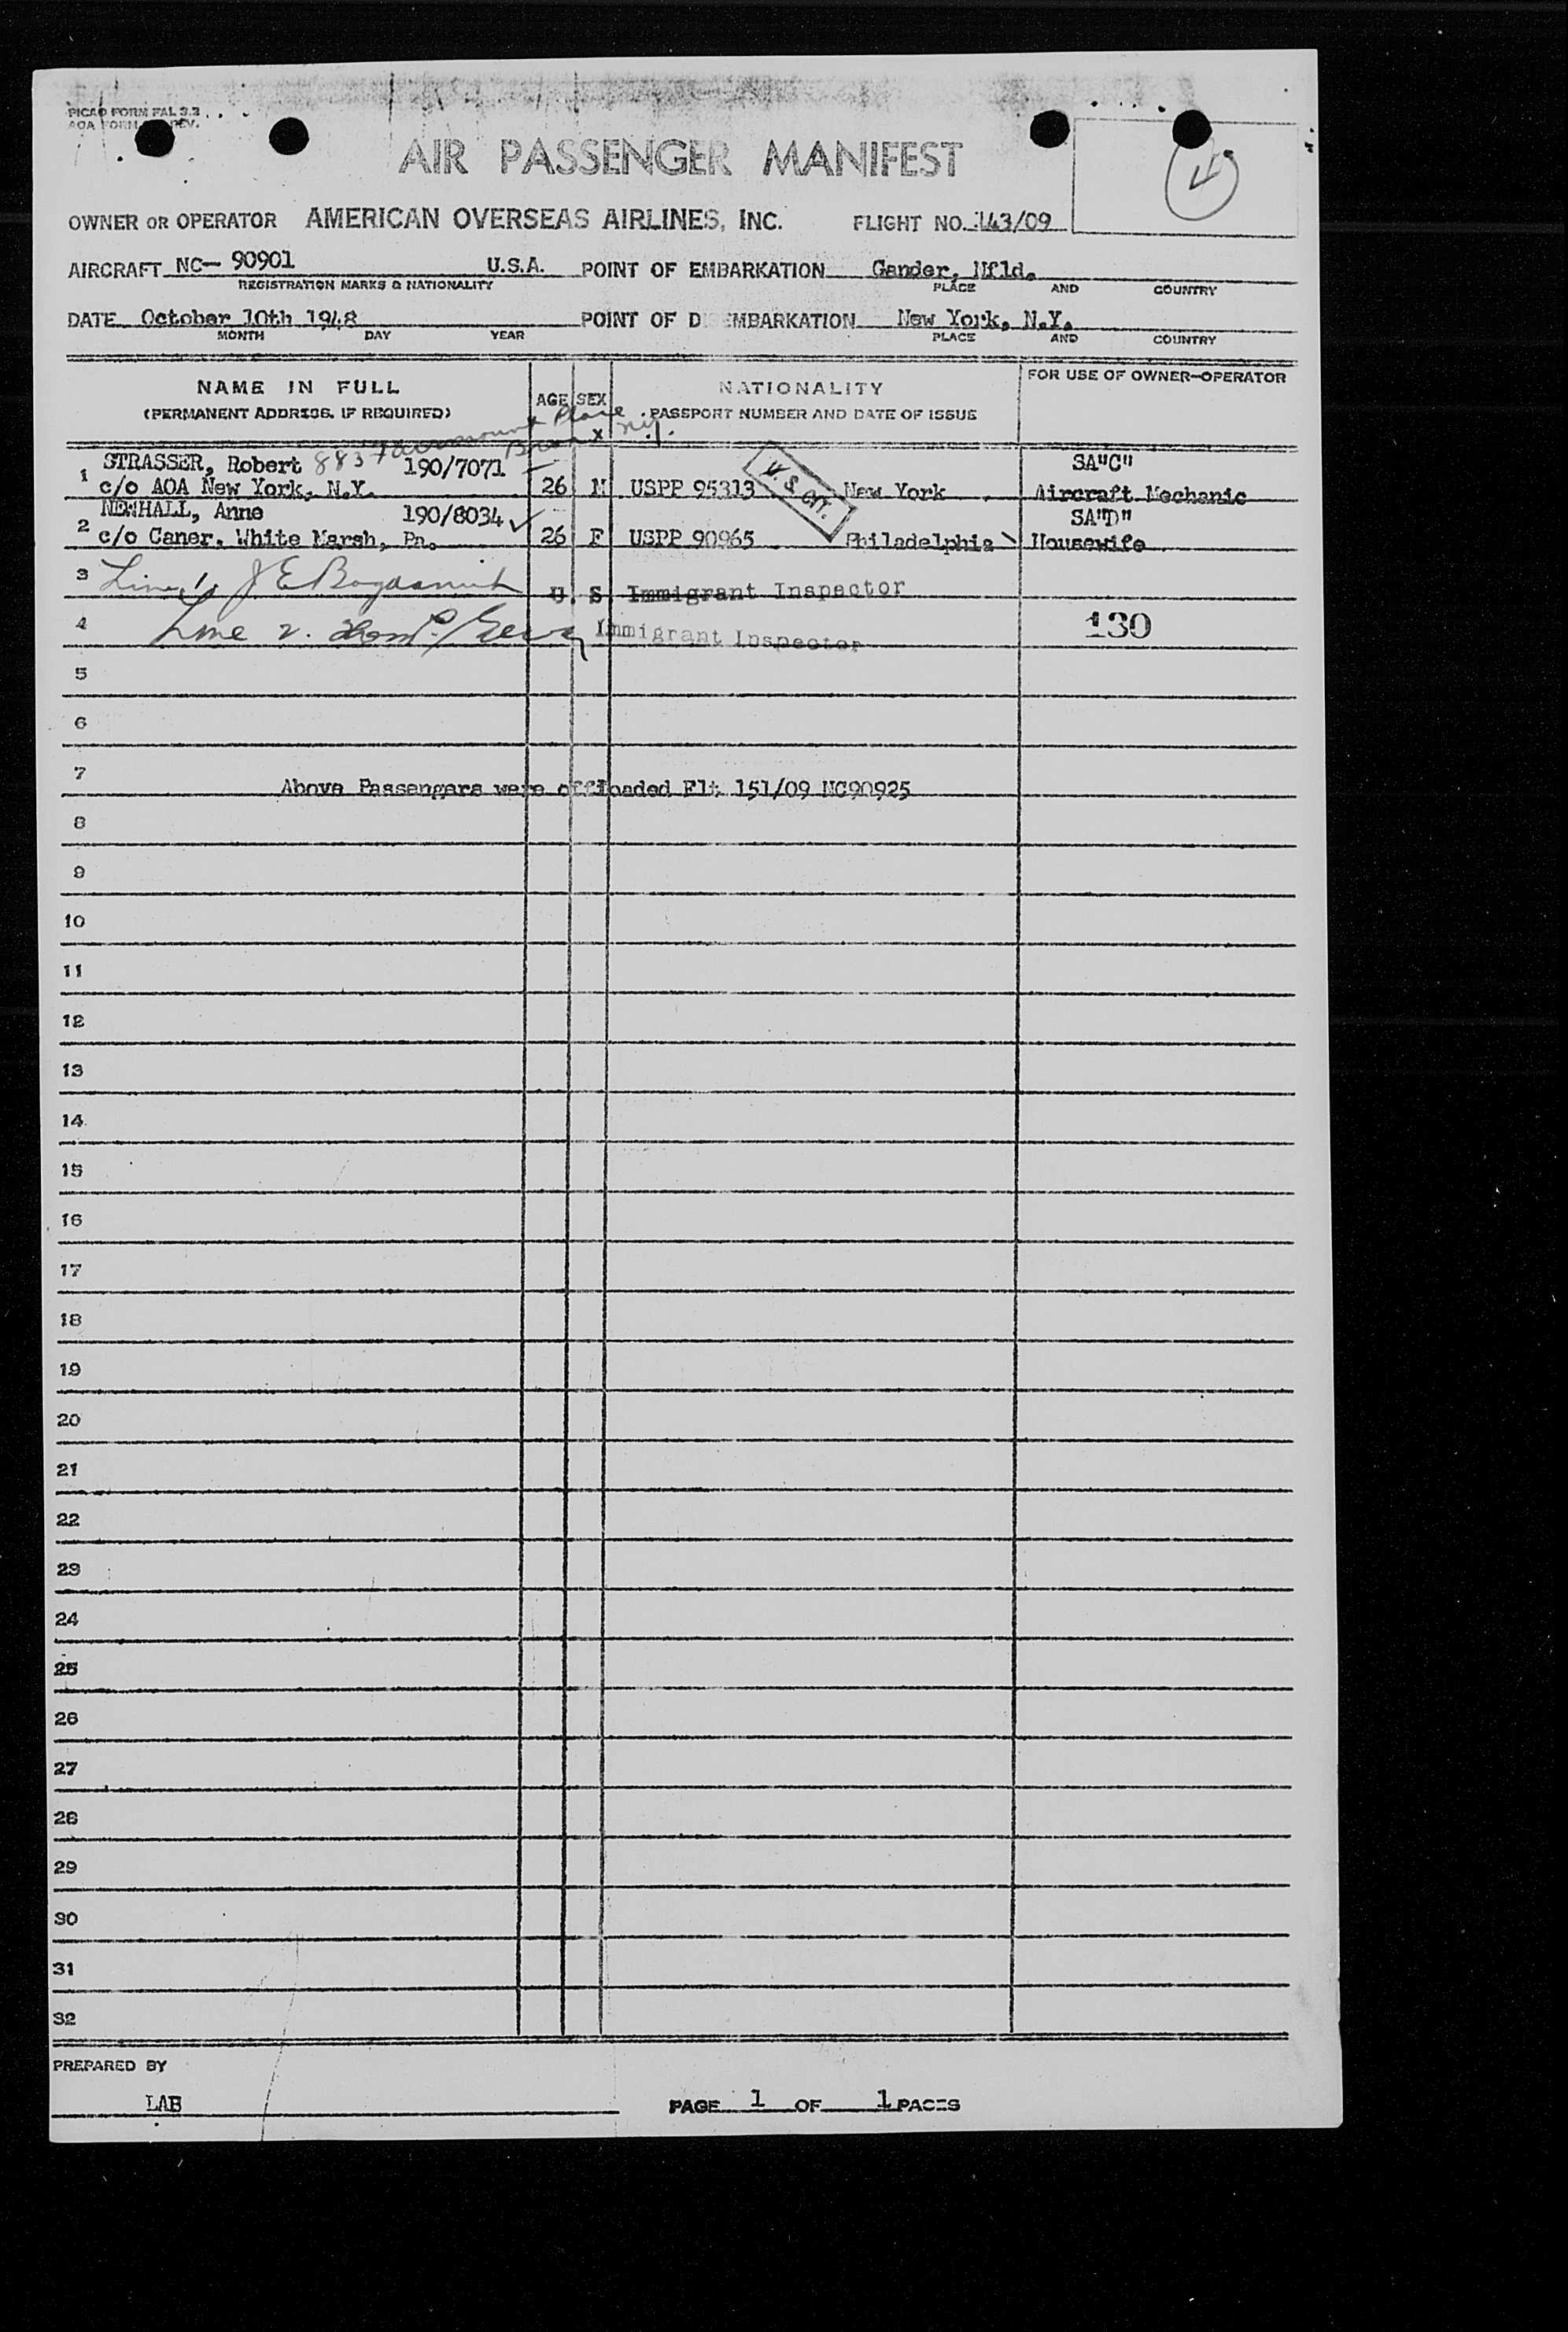 PICAO FORM FAL 3.2
AOA FORM REV.
AIR PASSENGER MANIFEST
OWNER OR OPERATOR AMERICAN OVERSEAS AIRLINES, INC. FLIGHT NO. 143/09
AIRCRAFT NC- 90901 U.S.A. POINT OF EMBARKATION Gander, Nfld.
REGISTRATION MARKS & NATIONALITY PLACE AND COUNTRY
DATE October 10th 1948 POINT OF D EMBARKATION New York, N.Y.
MONTH DAY YEAR PLACE AND COUNTRY
NAME IN FULL AGE SEX NATIONALITY FOR USE OF OWNER-OPERATOR
(PERMANENT ADDRESS, IF REQUIRED) PASSPORT NUMBER AND DATE OF ISSUE
883 Fairmount Place
Bronx N.Y.
1 STRASSER, Robert 190/7071 SA"C"
c/o AOA New York, N.Y. 26 M USPP 95313 U.S. CIT. New York Aircraft Mechanic
2 NEWHALL, Anne 190/8034 SA"D"
c/o Caner, White Marsh, Pa. 26 F USPP 90965 Philadelphia Housewife
3 Line 1, J E U. S. Immigrant Inspector
4 Line 2. Immigrant Inspector 130
5
6
7 Above Passengers were offloaded Flt 151/09 NC90925
8
9
10
11
12
13
14
15
16
17
18
19
20
21
22
23
24
25
26
27
28
29
30
31
32
PREPARED BY
LAB PAGE 1 OF 1 PAGES